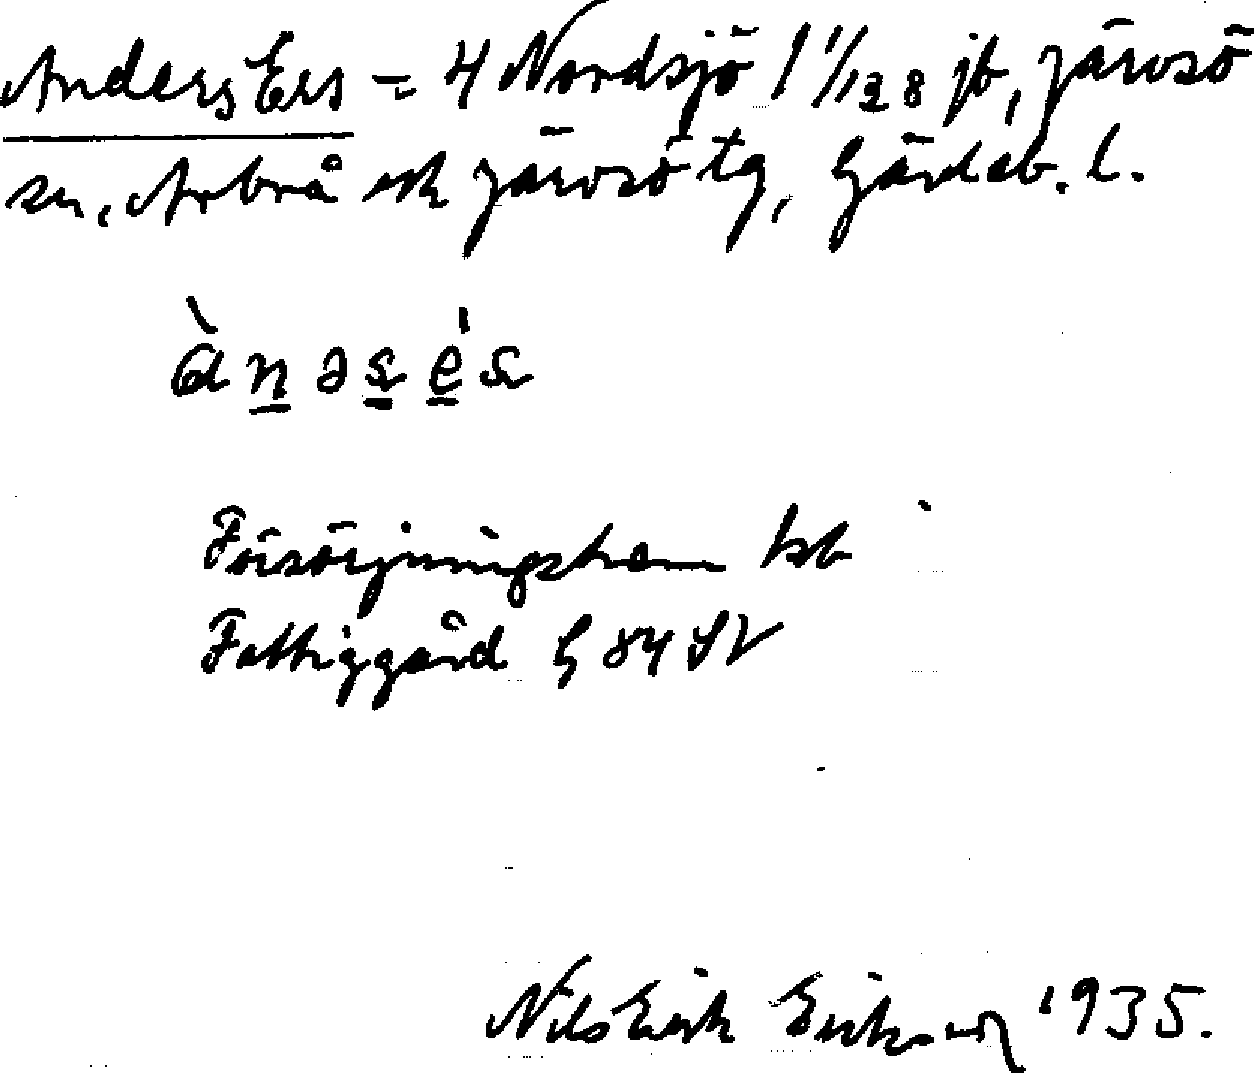 Anders Ers = 4 Nordsjö 1 1/128 jb, Järvsö
sn, Arbrå och Järvsö tg, Gävleb. l.
ànəsés
Försörjningshem
Fattiggård G 84 SV
Nils Erik Eriksson 1935.